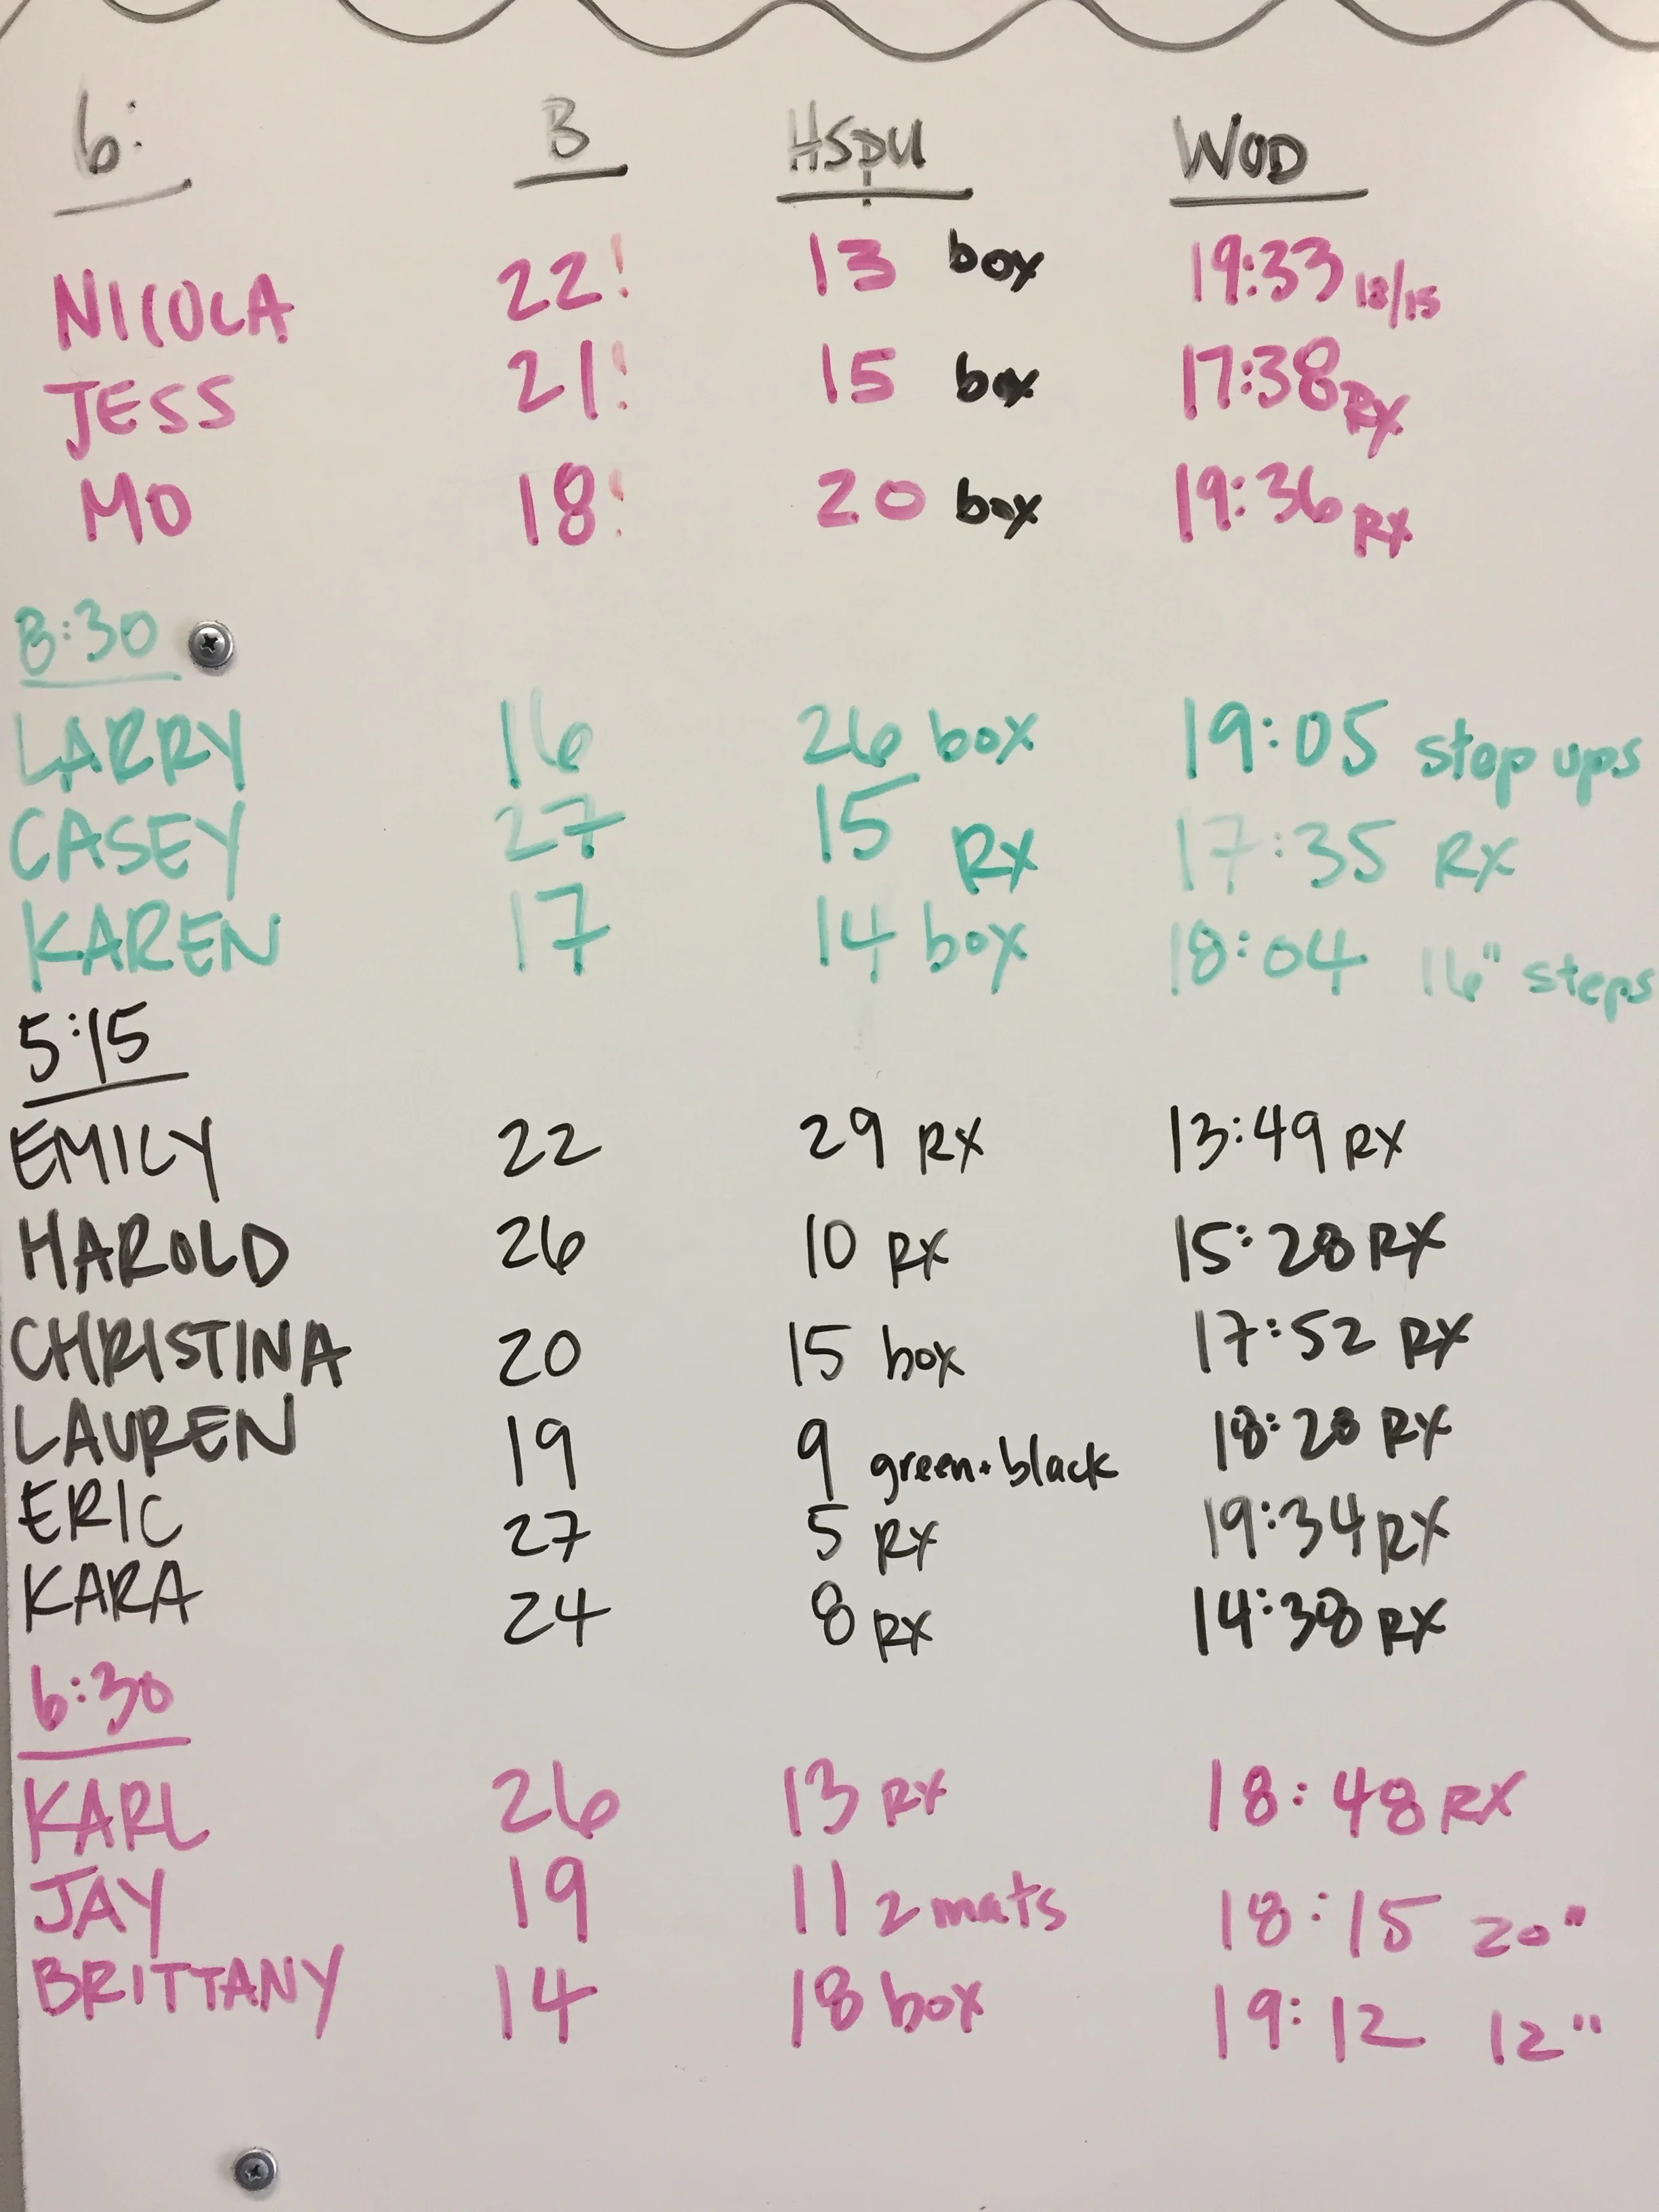 6: B HSPU WOD
NICOLA 22! 13 box 19:33 18/15
JESS 21! 15 box 17:38 RX
MO 18! 20 box 19:36 RX
8:30
LARRY 16 26 box 19:05 step ups
CASEY 27 15 RX 17:35 RX
KAREN 17 14 box 18:04 16" steps
5:15
EMILY 22 29 RX 13:49 RX
HAROLD 26 10 RX 15:28 RX
CHRISTINA 20 15 box 17:52 RX
LAUREN 19 9 green + black 18:28 RX
ERIC 27 5 RX 19:34 RX
KARA 24 8 RX 14:38 RX
6:30
KARL 26 13 RX 18:48 RX
JAY 19 11 2 mats 18:15 20"
BRITTANY 14 18 box 19:12 12"